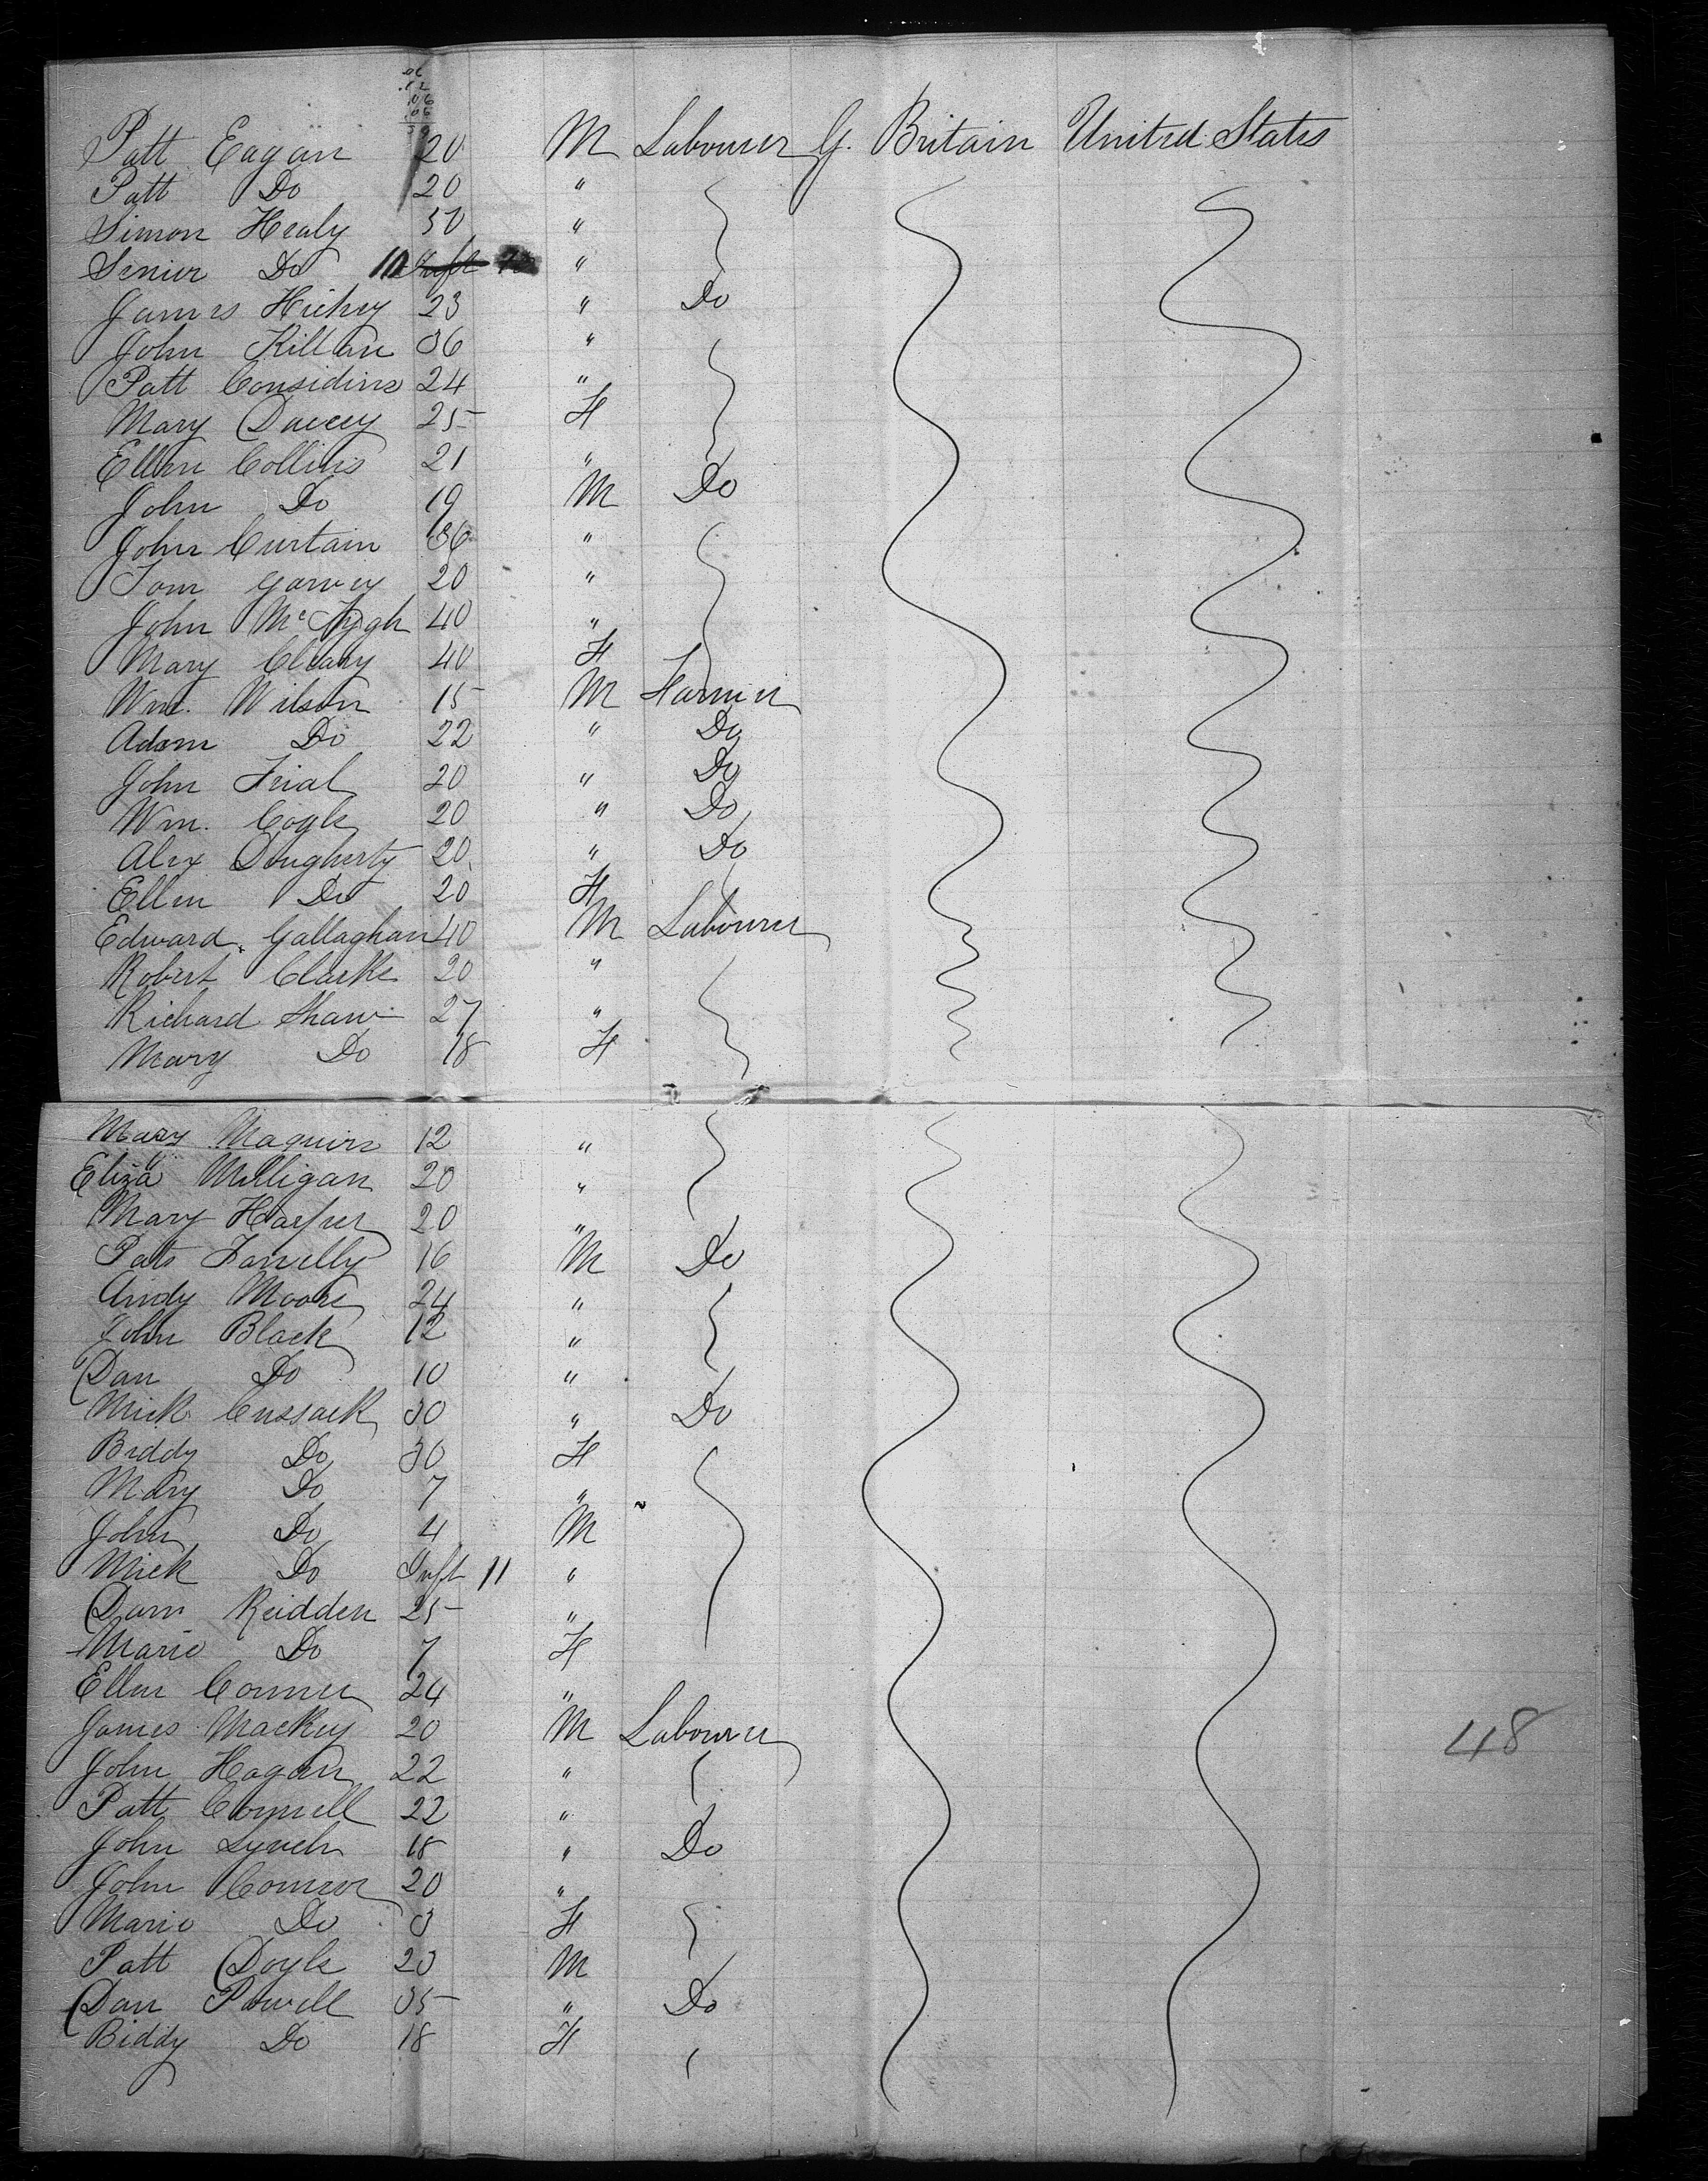 Patt Eagan 20 M Labourer G. Britain United States
Patt Do 20 "
Simon Healy 30 "
Senior Do 10 Inft "
James Hickey 23 " Do
John Killan 36 "
Patt Considine 24 "
Mary Davey 25 F
Ellen Collins 21 "
John Do 19 M Do
John Curtain 36 "
Tom Garvey 20 "
John 40 "
Mary Cleary 40 F
Wm. Wilson 15 M Farmer
Adam Do 22 " Do
John Frial 20 " Do
Wm. Cogle 20 " Do
Alex Dougherty 20 " Do
Ellen Do 20 F
Edward Gallaghan 40 M Labourer
Robert Clarke 20 "
Richard Shaw 27 "
Mary Do 18 F
Mary Maguire 12 "
Eliza Milligan 20 "
Mary Harper 20 "
Pats Farrelly 16 M Do
Andy Moore 24 "
John Black 12 "
Dan Do 10 "
Mick Cussack 30 " Do
Biddy Do 30 F
Mary Do 7 "
John Do 4 M
Mick Do Inft 11 "
Dam Reidden 25 "
Marie Do 7 F
Ellen Conner 24 "
James Mackey 20 M Labourer
John Hagan 22 "
Patt Connell 22 "
John Lynch 18 " Do
John Connor 20 "
Marie Do 3 F
Patt Doyle 23 M
Dan Powell 35 " Do
Biddy Do 18 F
48